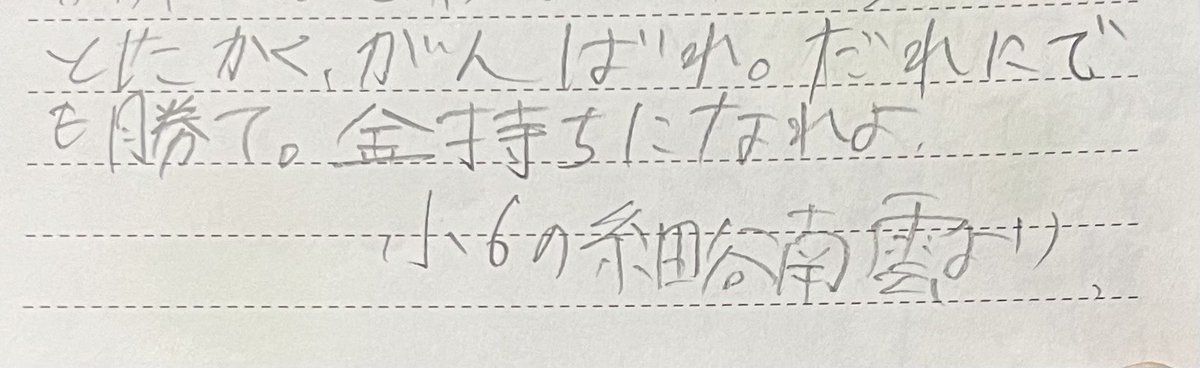 とにかく、がんばれ。だれにで
も勝て。金持ちになれよ。
小6の細谷南雲より